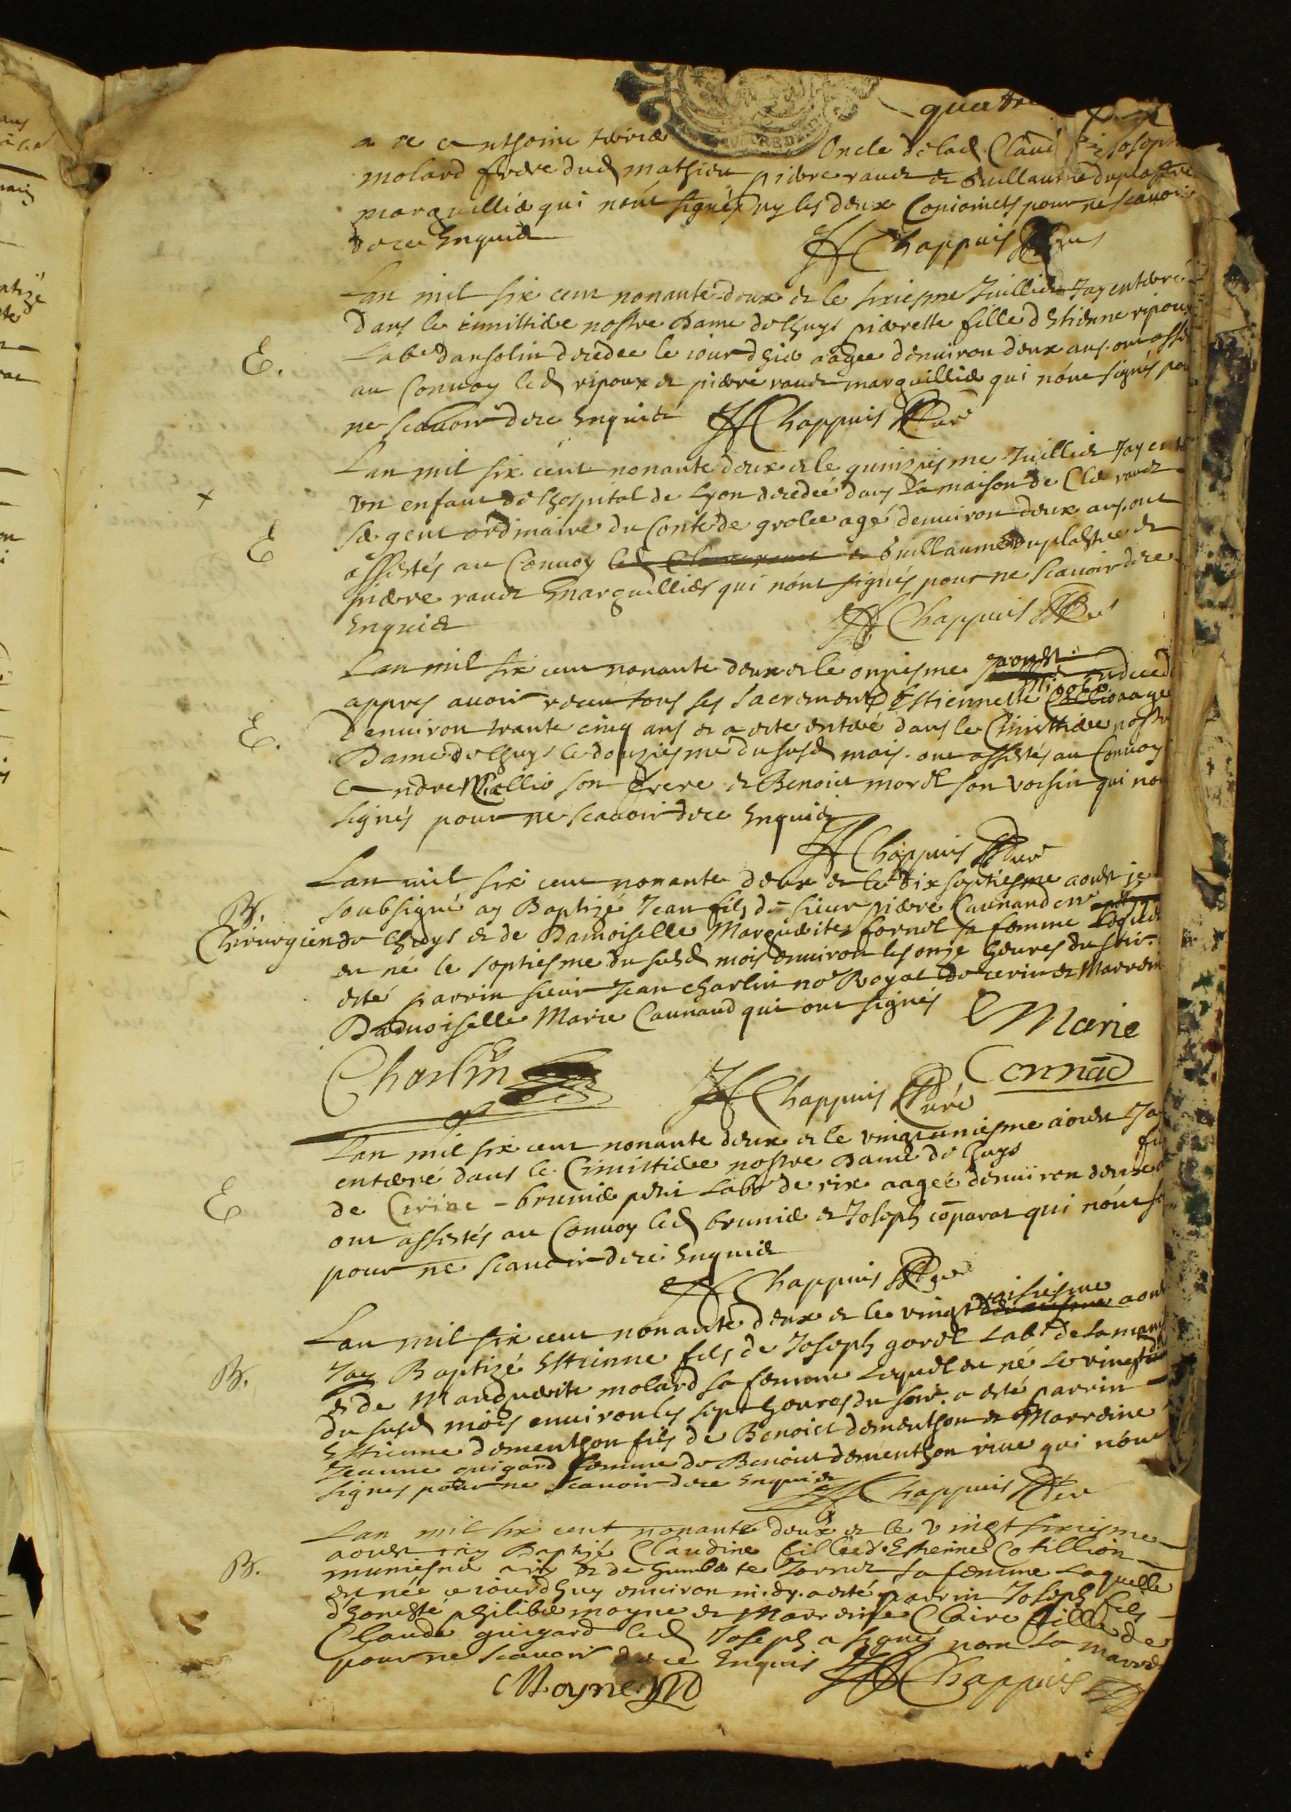 quatre
Oncle de lad Claud Joseph
molard frere dud mathieu pierre raud et Guillaume duplastre
marguillie qui nont signés ny les deux Conioincts pour ne scavoir
de ce Enquis
Chappuis Curé
Lan mil six cent nonante deux et le sixiesme Juillie Jay enterré
Dans le cimittiere nostre Dame de Lhuys pierrette fille d Etienne ripoux
E.
Labr dansolin decedee le iourdhier aagee denuiron deux ans. ont assi
au Conuoy led ripoux et pierre raud marguillie qui nont signés pour
ne scauoir de ce Enquis Chappuis Curé
Lan mil six cent nonante deux et le quinziesme Juillie Jay ente
x
Un enfant de lhospital de Lyon decedée dans la maison de Cle raud
Sergent ordinaire du Conte de grolee agé denuiron deux ans. ont
E
assistés au Conuoy led et Guillaume duplastre et
pierre raud marguilliers qui nont signés pour ne scauoir de ce
Enquis
Chappuis Curé
Lan mil six cent nonante deux et le onziesme aoust
appres auoir receu tous ses sacrements Estiennette aage
E.
Denuiron trante cinq ans et a este enteré dans le Cimittiere nostre
Dame de Lhuys le douziesme du susd mois. ont assistés au Conuoy
Andre son frere et Benoict morel son voisin qui nont
signés pour ne scauoir de ce Enquis
Chappuis Curé
Lan mil six cent nonante deux et le dix septiesme aoust je
B.
soubsigné ay Baptizé Jean fils de sieur pierre Caunand
Chirurgien de Lhuys et de Damoiselle Marguerite fornel sa femme
est né le septiesme du susd mois enuiron les onze heures du soir. a
esté parrin sieur Jean charlin nore Royal de et Marrene
Damoiselle Marie Caunaud qui ont signés
Marie
Connad
Charlin
Chappuis Curé
Lan mil six cent nonante deux et le vingt uniesme aoust Jay
enteré dans le Cimittiere nostre dame de Lhuys
E
de brunie petit Labr de rix aageé denuiron deux
ont assistés au Conuoy led brunie et Joseph coparat qui nont s
pour ne scauoir de ce Enquis
Chappuis Curé
Lan mil six cent nonante deux et le vingt troisiesme aoust
Jay Baptizé Estienne fils de Joseph godet Labr de
B.
et de Marguerite molard sa femme Lequel est né le vingt
du susd mois enuiron les sept heures du soir. a esté parrin
Estienne dementhon fils de Benoict dementhon et Marreine
Jeanne guigard femme de Benoict dementhon qui nont
signes pour ne scauoir de ce Enquis Chappuis Curé
Lan mil six cent nonante deux et le vingt sixiesme
B.
aoust Jay Baptizé Claudine fille d Estienne Cotillion
et de sa femme Laquelle
est née ce iourdhuy enuiron midy. a esté parrin Joseph fils
dhonesté philibe moyne et Marreine Claire fille de
Claude guigard led Joseph a signé non la marre
pour ne scauoir de ce Enquis Chappuis
Moyne